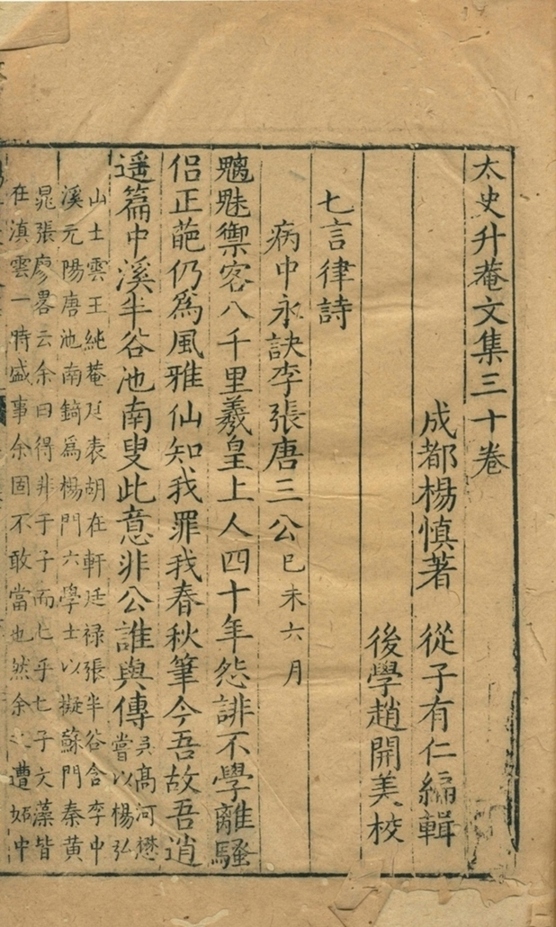 太史升菴文集三十卷
成都楊慎著 從子有仁編輯
後學趙開美校
七言律詩
病中永訣李張唐三公 己未六月
魑魅禦客八千里羲皇上人四十年怨誹不學離騷
侣正葩仍爲風雅仙知我罪我春秋筆今吾故吾逍
遥篇中溪半谷池南叟此意非公誰與傳
吴高河懋
嘗以楊弘
山士雲王純菴廷表胡在軒廷禄張半谷含李中
溪元陽唐池南錡爲楊門六學士以擬蘇門秦黄
晁張廖畧云余曰得非于子而七乎七子文藻皆
在滇雲一時盛事余固不敢當也然余之遭妬中